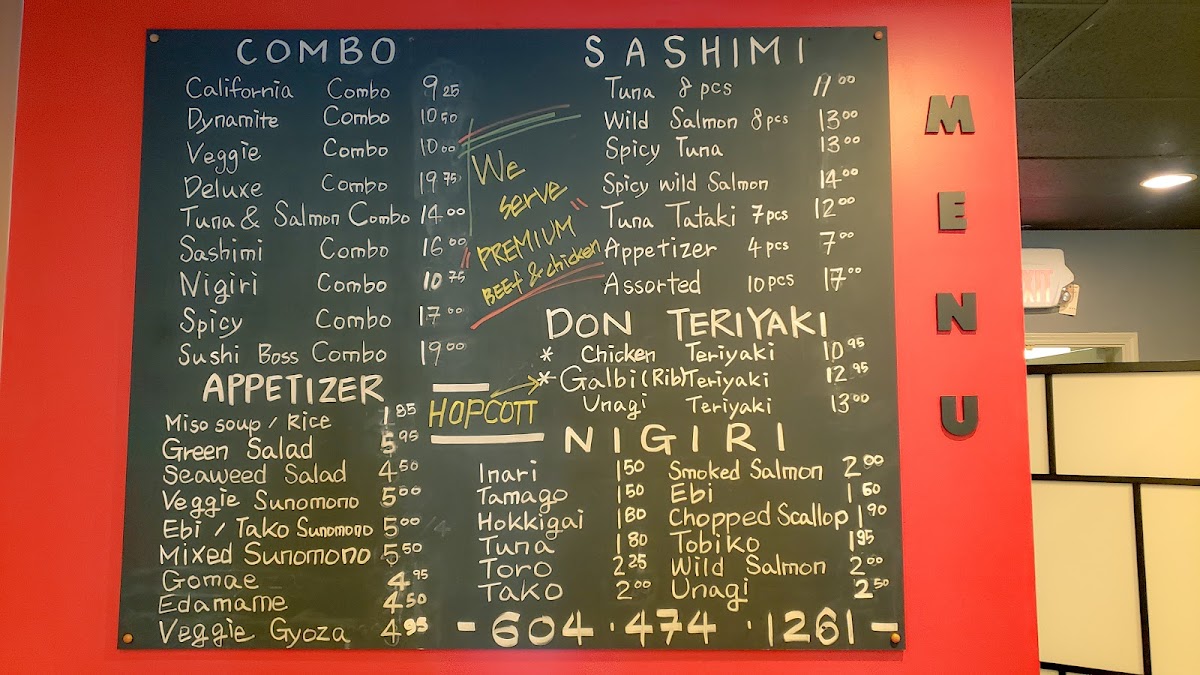 COMBO
California Combo 9.25
Dynamite Combo 10.50
Veggie Combo 10.00
Deluxe Combo 19.75
Tuna & Salmon Combo 14.00
Sashimi Combo 16.00
Nigiri Combo 10.75
Spicy Combo 17.00
Sushi Boss Combo 19.00
APPETIZER
Miso soup / Rice 1.85
Green Salad 5.95
Seaweed Salad 4.50
Veggie Sunomono 5.00
Ebi / Tako Sunomono 5.00
Mixed Sunomono 5.50
Gomae 4.95
Edamame 4.50
Veggie Gyoza 4.95
We
serve
"PREMIUM"
BEEF & chicken
HOPCOTT
SASHIMI
Tuna 8 pcs 11.00
Wild Salmon 8 pcs 13.00
Spicy Tuna 13.00
Spicy wild Salmon 14.00
Tuna Tataki 7 pcs 12.00
Appetizer 4 pcs 7.00
Assorted 10 pcs 17.00
DON TERIYAKI
* Chicken Teriyaki 10.95
* Galbi (Rib) Teriyaki 12.95
Unagi Teriyaki 13.00
NIGIRI
Inari 1.50 Smoked Salmon 2.00
Tamago 1.50 Ebi 1.60
Hokkigai 1.80 Chopped Scallop 1.90
Tuna 1.80 Tobiko 1.95
Toro 2.25 Wild Salmon 2.00
Tako 2.00 Unagi 2.50
- 604 · 474 · 1261 -
MENU
EXIT